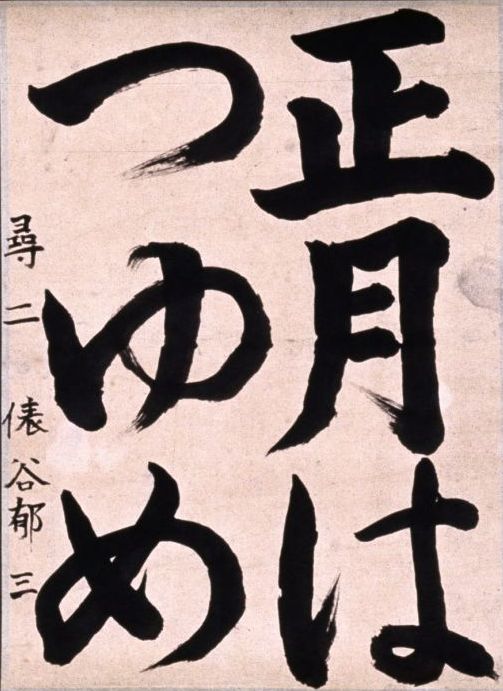 正月は
つゆめ
尋二 俵谷郁三